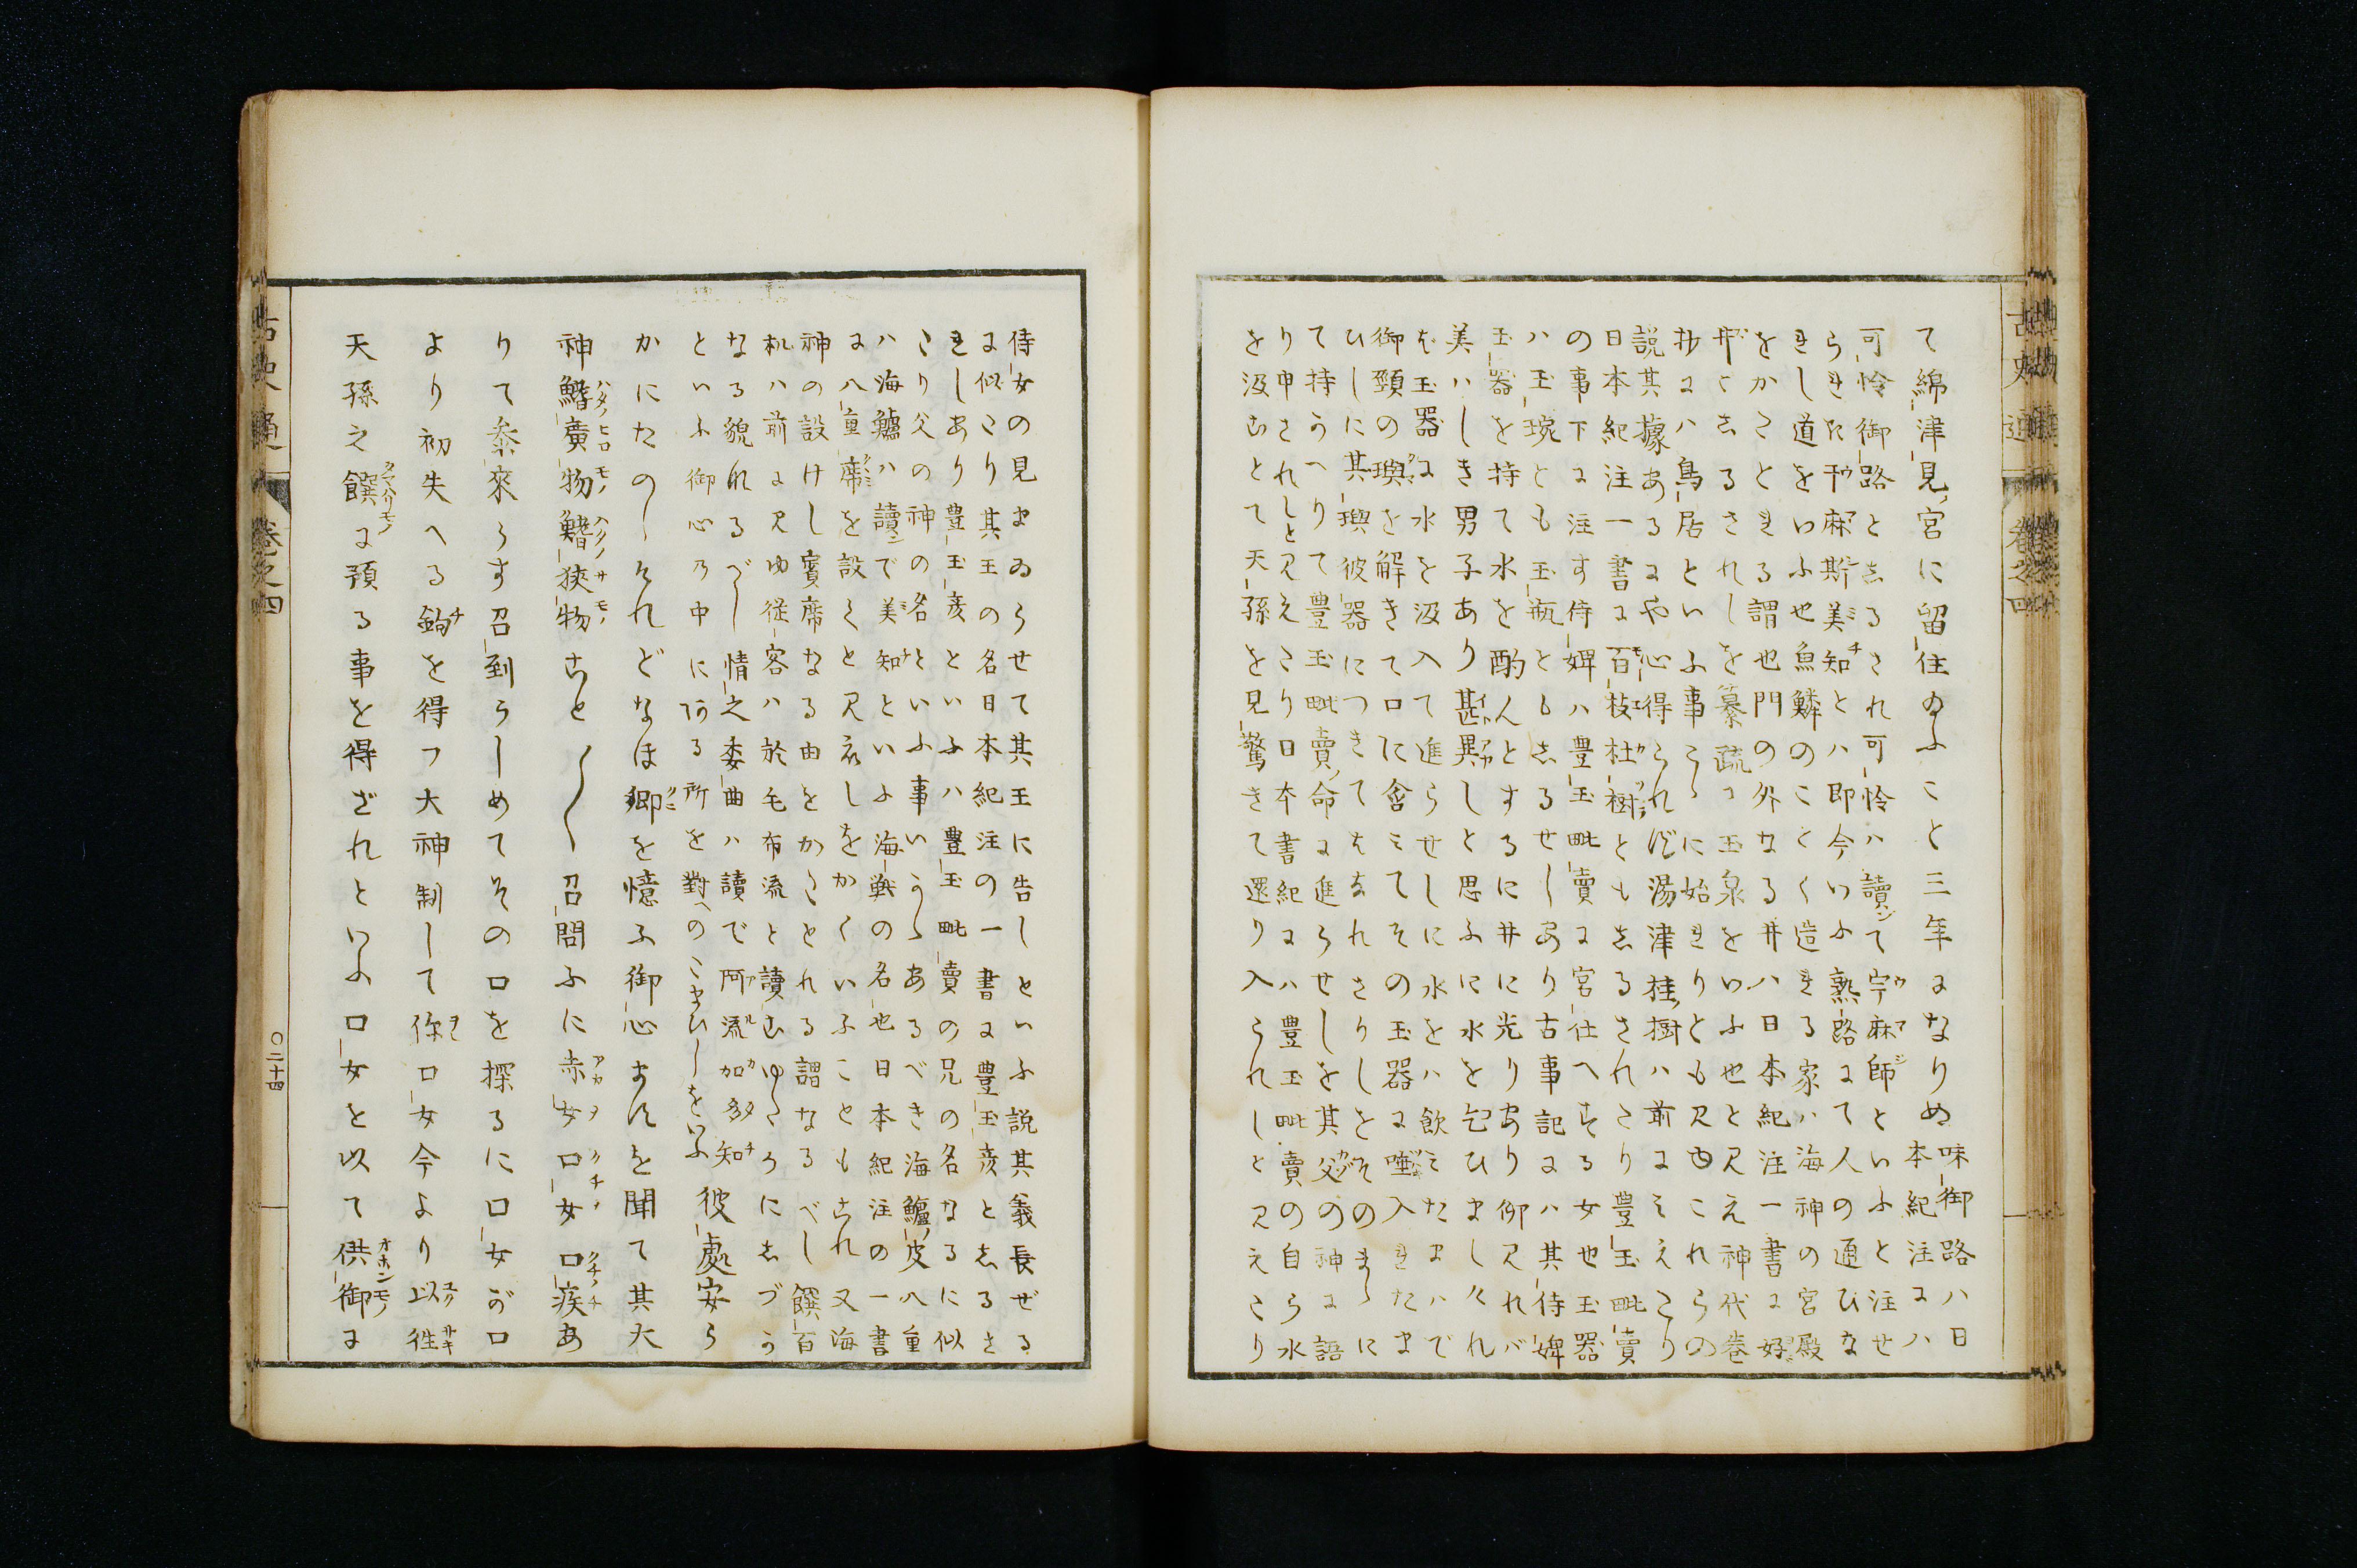 古史通 巻之四
て綿津見宮に留住ゐふこと三年になりぬ 味御路ハ日
本紀注にハ
可怜御路としるされ可怜ハ讀て宇麻師といふと注せ
らきた于麻斯美知とハ即今いふ熟路にて人の通ひな
れし道をいふ也魚鱗のことく造れる家ハ海神の宮殿
をかことれる謂也門の外なる井ハ日本紀注一書に好
井としるされしを纂疏に玉泉をいふ也と見え神代巻
抄にハ鳥居といふ事こゝに始れりとも見ゆこれらの
説其據あるにや心得られず湯津桂樹ハ前にみえたり
日本紀注一書に百枝杜樹ともしるされたり豊玉毗賣
の事下に注す侍婢ハ豊玉毗賣に宮仕へする女也玉器
ハ玉琬とも玉瓶ともしるせしあり古事記にハ其侍婢
玉器を持て水を酌んとするに井に光りあり仰見れバ
美ハしき男子あり甚異しと思ふに水を乞ひまし〱れ
ば玉器に水を汲入て進らせしに水をハ飲みたまハで
御頸の璵を解きて口に含みてその玉器に唾入れたま
ひしに其璵彼器につきてはなれさりしをそのまゝに
て持うへりて豊玉毗賣命に進らせしを其父の神に語
り申されしと見えたり日本書紀にハ豊玉毗賣の自ら水
を汲むとて天孫を見驚きて還り入られしと見えたり
侍女の見まゐらせて其王に告しといふ説其義長ぜる
に似たり其王の名日本紀注の一書に豊玉彦としるさ
れしあり豊玉彦といふハ豊玉毗賣の兄の名なるに似
たり父の神の名といふ事いうゝあるべき海驢皮八重
ハ海驢ハ讀で美知といふ海獣の名也日本紀注の一書
に八重席を設くと見えしをかくいふこともあれ又海
神の設けし賓席なる由をかたとれる謂なるべし饌百
机ハ前に見ゆ従容ハ於毛布流と讀むゆたうにしづう
なる貌れるべし情之委曲ハ讀で阿流加多知
といふ御心の中に有る所を對へのたまひしをいふ 彼處安ら
かにたのしけれどなほ郷を憶ふ御心まれを聞て其大
神鰭廣物鰭狭物こと〲く召問ふに赤女口女口疾あ
りて参來らす召到らしめてその口を探るに口女が口
より初失へる鉤を得つ大神制して你口女今より以徃
天孫之饌に預る事を得ざれといふ口女を以て供御に
古史通 巻之四
〇二十四